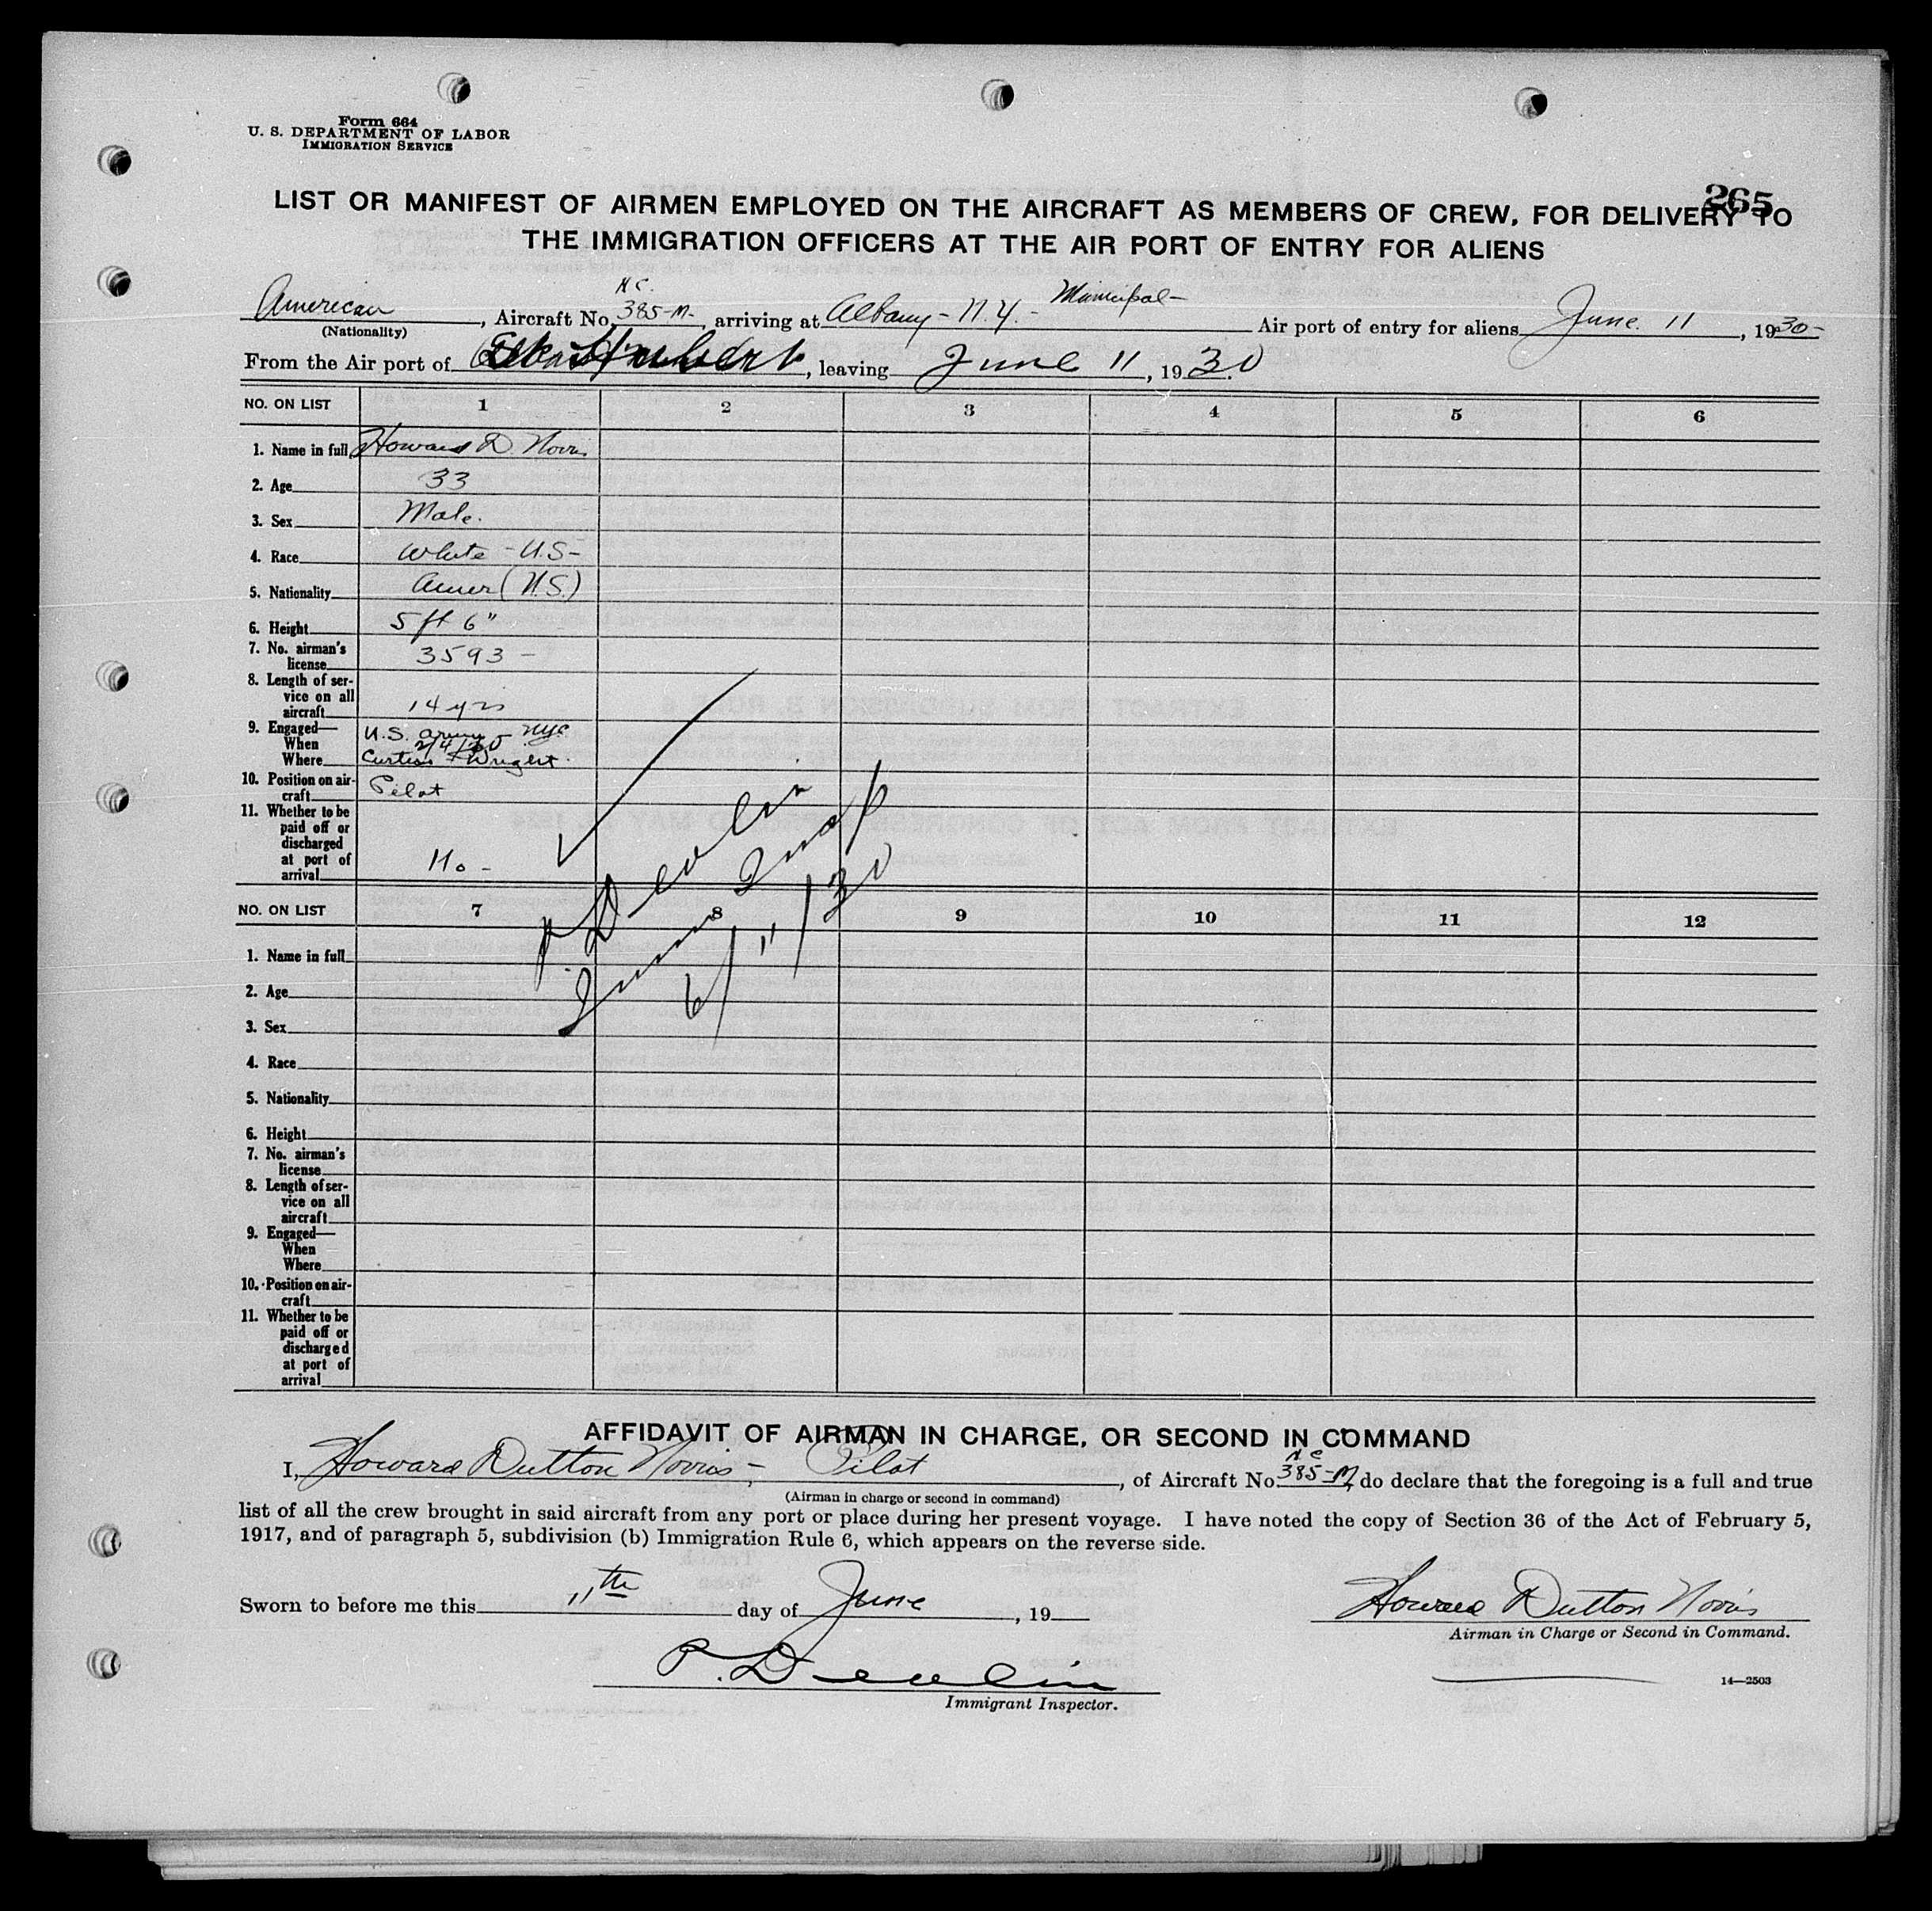 Form 664
U. S. DEPARTMENT OF LABOR
IMMIGRATION SERVICE
265
LIST OR MANIFEST OF AIRMEN EMPLOYED ON THE AIRCRAFT AS MEMBERS OF CREW, FOR DELIVERY TO
THE IMMIGRATION OFFICERS AT THE AIR PORT OF ENTRY FOR ALIENS
American, Aircraft No. NC. 385-M-, arriving at Albany - N.Y. - Municipal - Air port of entry for aliens June 11, 1930-
(Nationality)
From the Air port of , leaving June 11, 1930
NO. ON LIST 1 2 3 4 5 6
1. Name in full Howard D Norris
2. Age 33
3. Sex Male.
4. Race White - U.S-
5. Nationality Amer (U.S.)
6. Height 5 ft 6"
7. No. airman's
license 3593 -
8. Length of ser-
vice on all
aircraft 14 yrs
9. Engaged— U.S. Army - NYC
When 2/4/30
Where Curtiss Wright.
10. Position on air-
craft Pilot
11. Whether to be
paid off or
discharged
at port of
arrival No -
P. Devlin
Imm Insp
6/11/30
NO. ON LIST 7 8 9 10 11 12
1. Name in full
2. Age
3. Sex
4. Race
5. Nationality
6. Height
7. No. airman's
license
8. Length of ser-
vice on all
aircraft
9. Engaged—
When
Where
10. Position on air-
craft
11. Whether to be
paid off or
discharged
at port of
arrival
AFFIDAVIT OF AIRMAN IN CHARGE, OR SECOND IN COMMAND
I, Howard Dutton Norris -, Pilot, of Aircraft No. NC 385-M, do declare that the foregoing is a full and true
(Airman in charge or second in command)
list of all the crew brought in said aircraft from any port or place during her present voyage. I have noted the copy of Section 36 of the Act of February 5,
1917, and of paragraph 5, subdivision (b) Immigration Rule 6, which appears on the reverse side.
Sworn to before me this 11th day of June, 19
Howard Dutton Norris
Airman in Charge or Second in Command.
P. Devlin
Immigrant Inspector.
14—2503